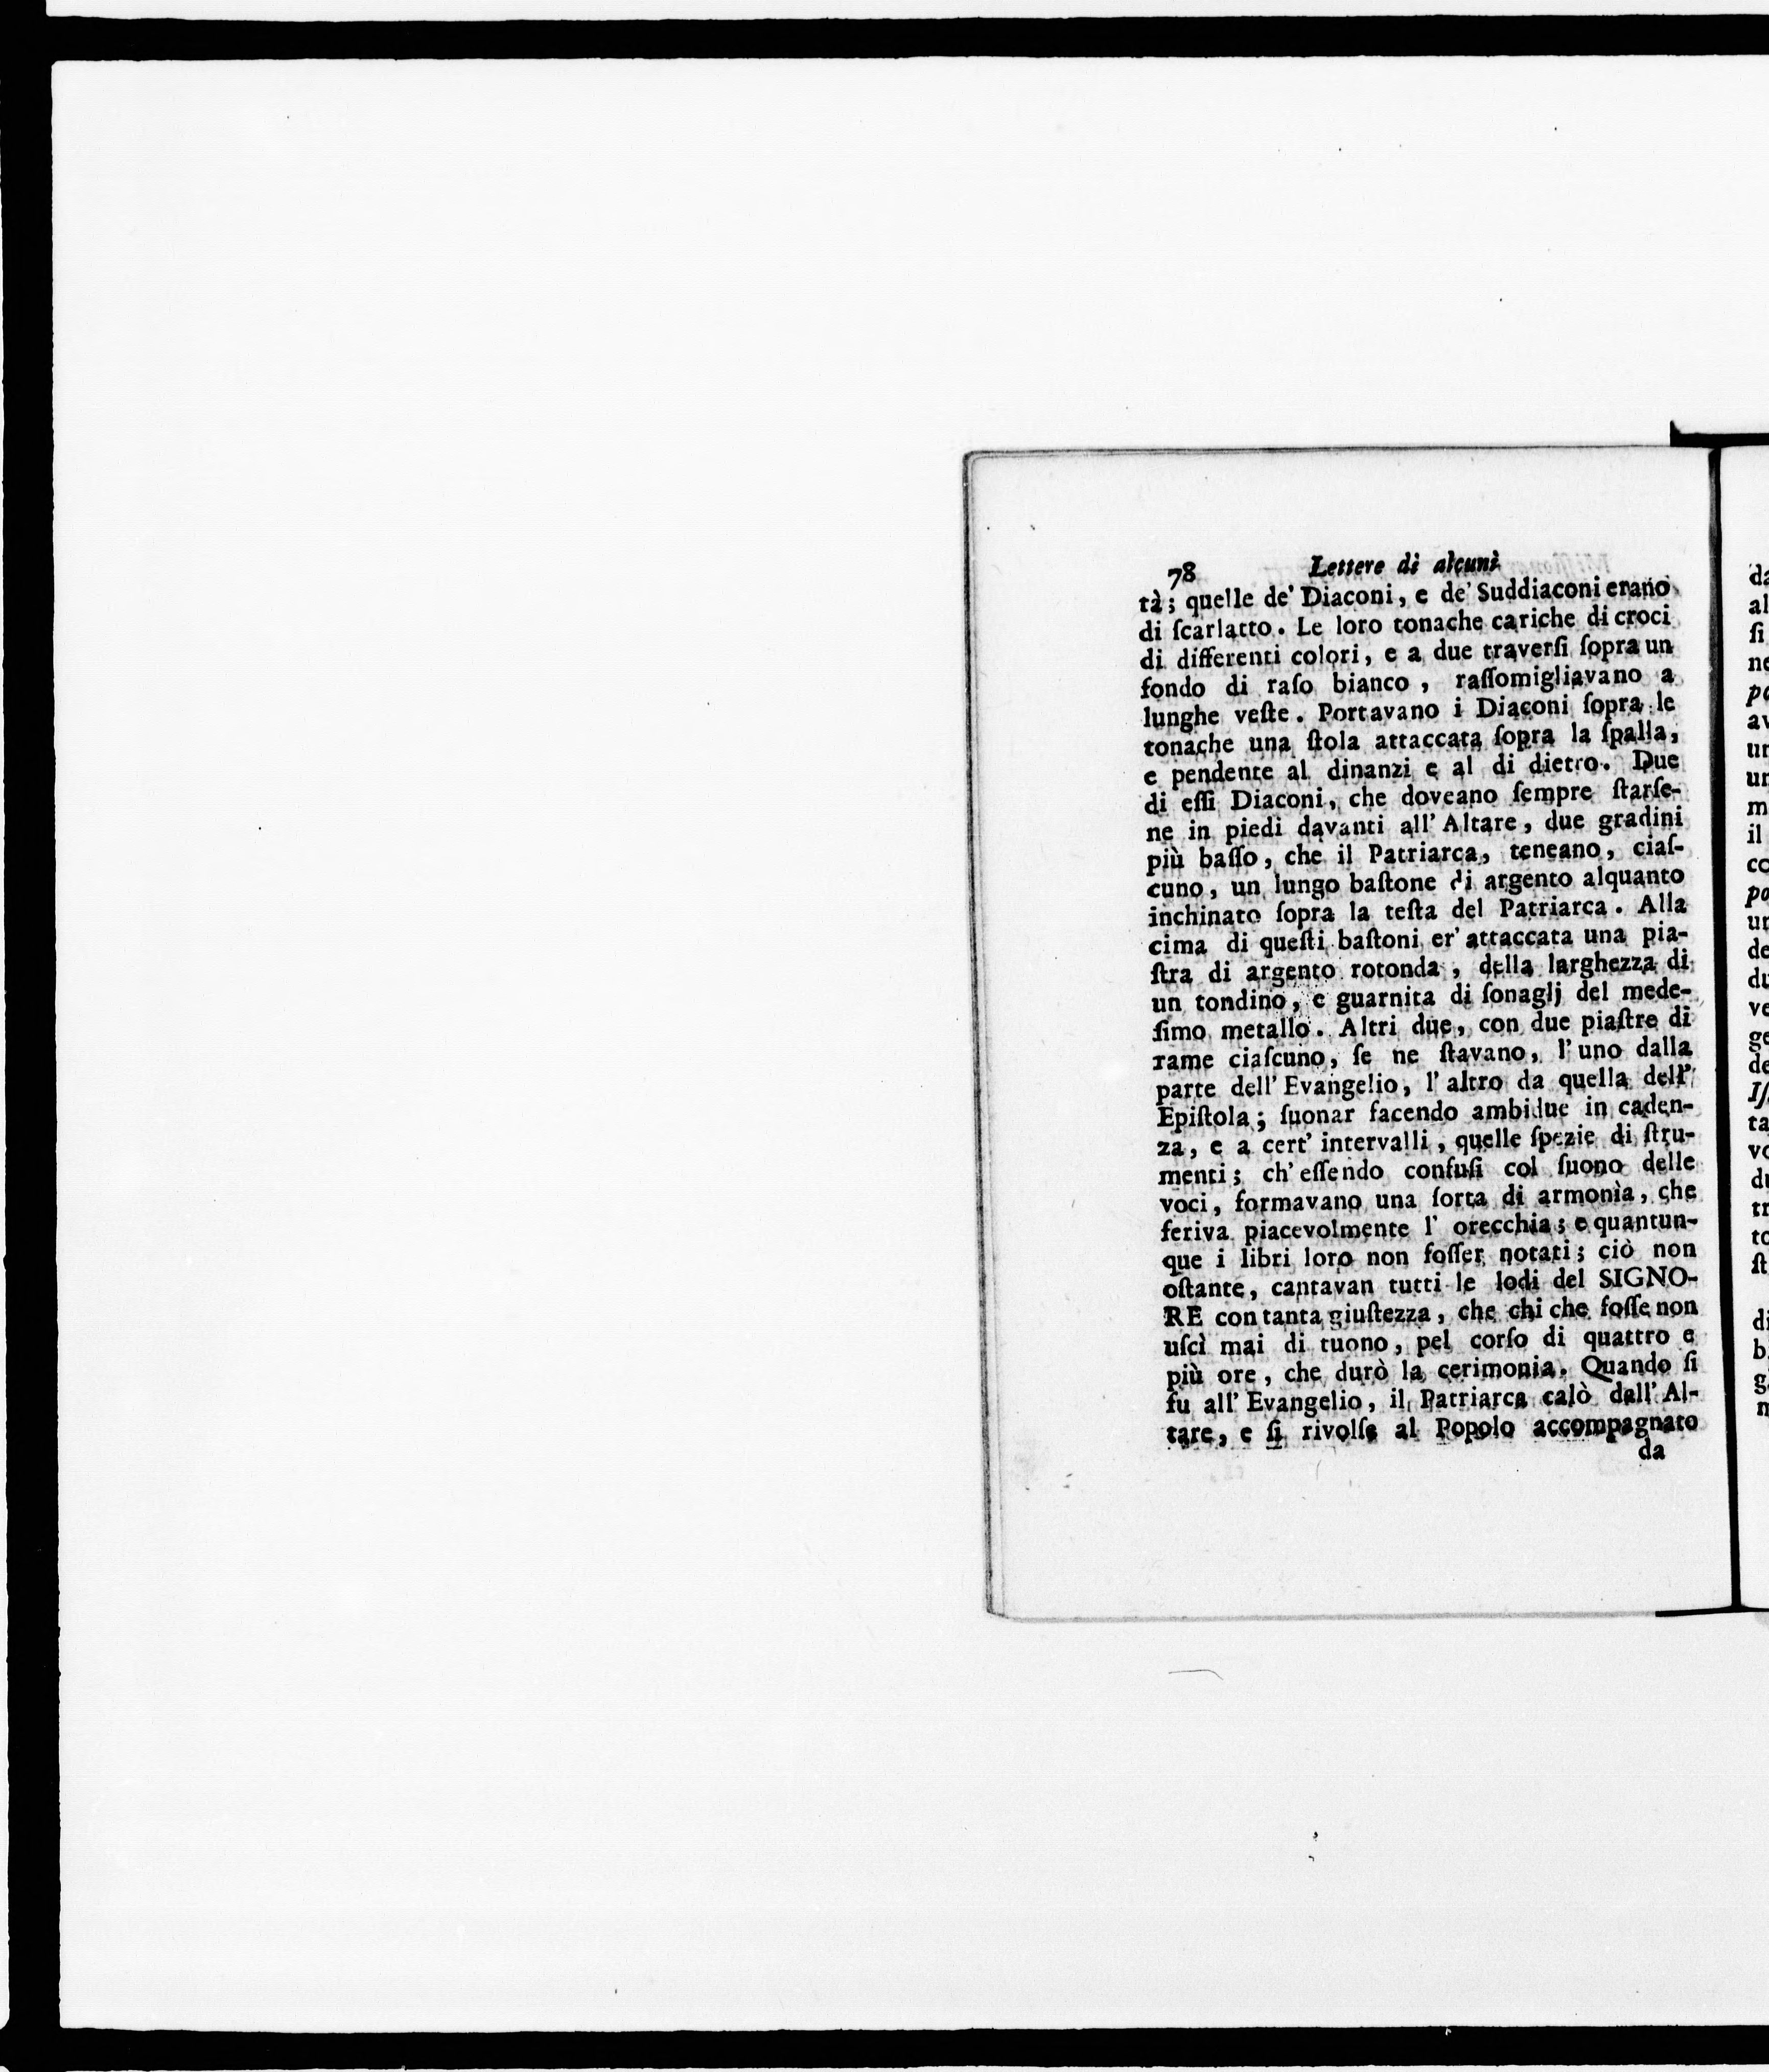 78 Lettere di alcuni
tà; quelle de' Diaconi, e de' Suddiaconi erano
di ſcarlatto. Le loro tonache cariche di croci
di differenti colori, e a due traverſi ſopra un
fondo di raſo bianco, raſſomigliavano a
lunghe veſte. Portavano i Diaconi ſopra le
tonache una ſtola attaccata ſopra la ſpalla,
e pendente al dinanzi e al di dietro. Due
di eſſi Diaconi, che doveano ſempre ſtarſe-
ne in piedi davanti all' Altare, due gradini
più baſſo, che il Patriarca, teneano, ciaſ-
cuno, un lungo baſtone di argento alquanto
inchinato ſopra la teſta del Patriarca. Alla
cima di queſti baſtoni er' attaccata una pia-
ſtra di argento rotonda, della larghezza di
un tondino, e guarnita di ſonaglj del mede-
ſimo metallo. Altri due, con due piaſtre di
rame ciaſcuno, ſe ne ſtavano, l' uno dalla
parte dell' Evangelio, l' altro da quella dell'
Epiſtola; ſuonar facendo ambidue in caden-
za, e a cert' intervalli, quelle ſpezie di ſtru-
menti; ch' eſſendo confuſi col ſuono delle
voci, formavano una ſorta di armonìa, che
feriva piacevolmente l' orecchia; e quantun-
que i libri loro non foſſer notati; ciò non
oſtante, cantavan tutti le lodi del SIGNO-
RE con tanta giuſtezza, che chi che foſſe non
uſcì mai di tuono, pel corſo di quattro e
più ore, che durò la cerimonia. Quando ſi
fu all' Evangelio, il Patriarca calò dall' Al-
tare, e ſi rivolſe al Popolo accompagnato
da